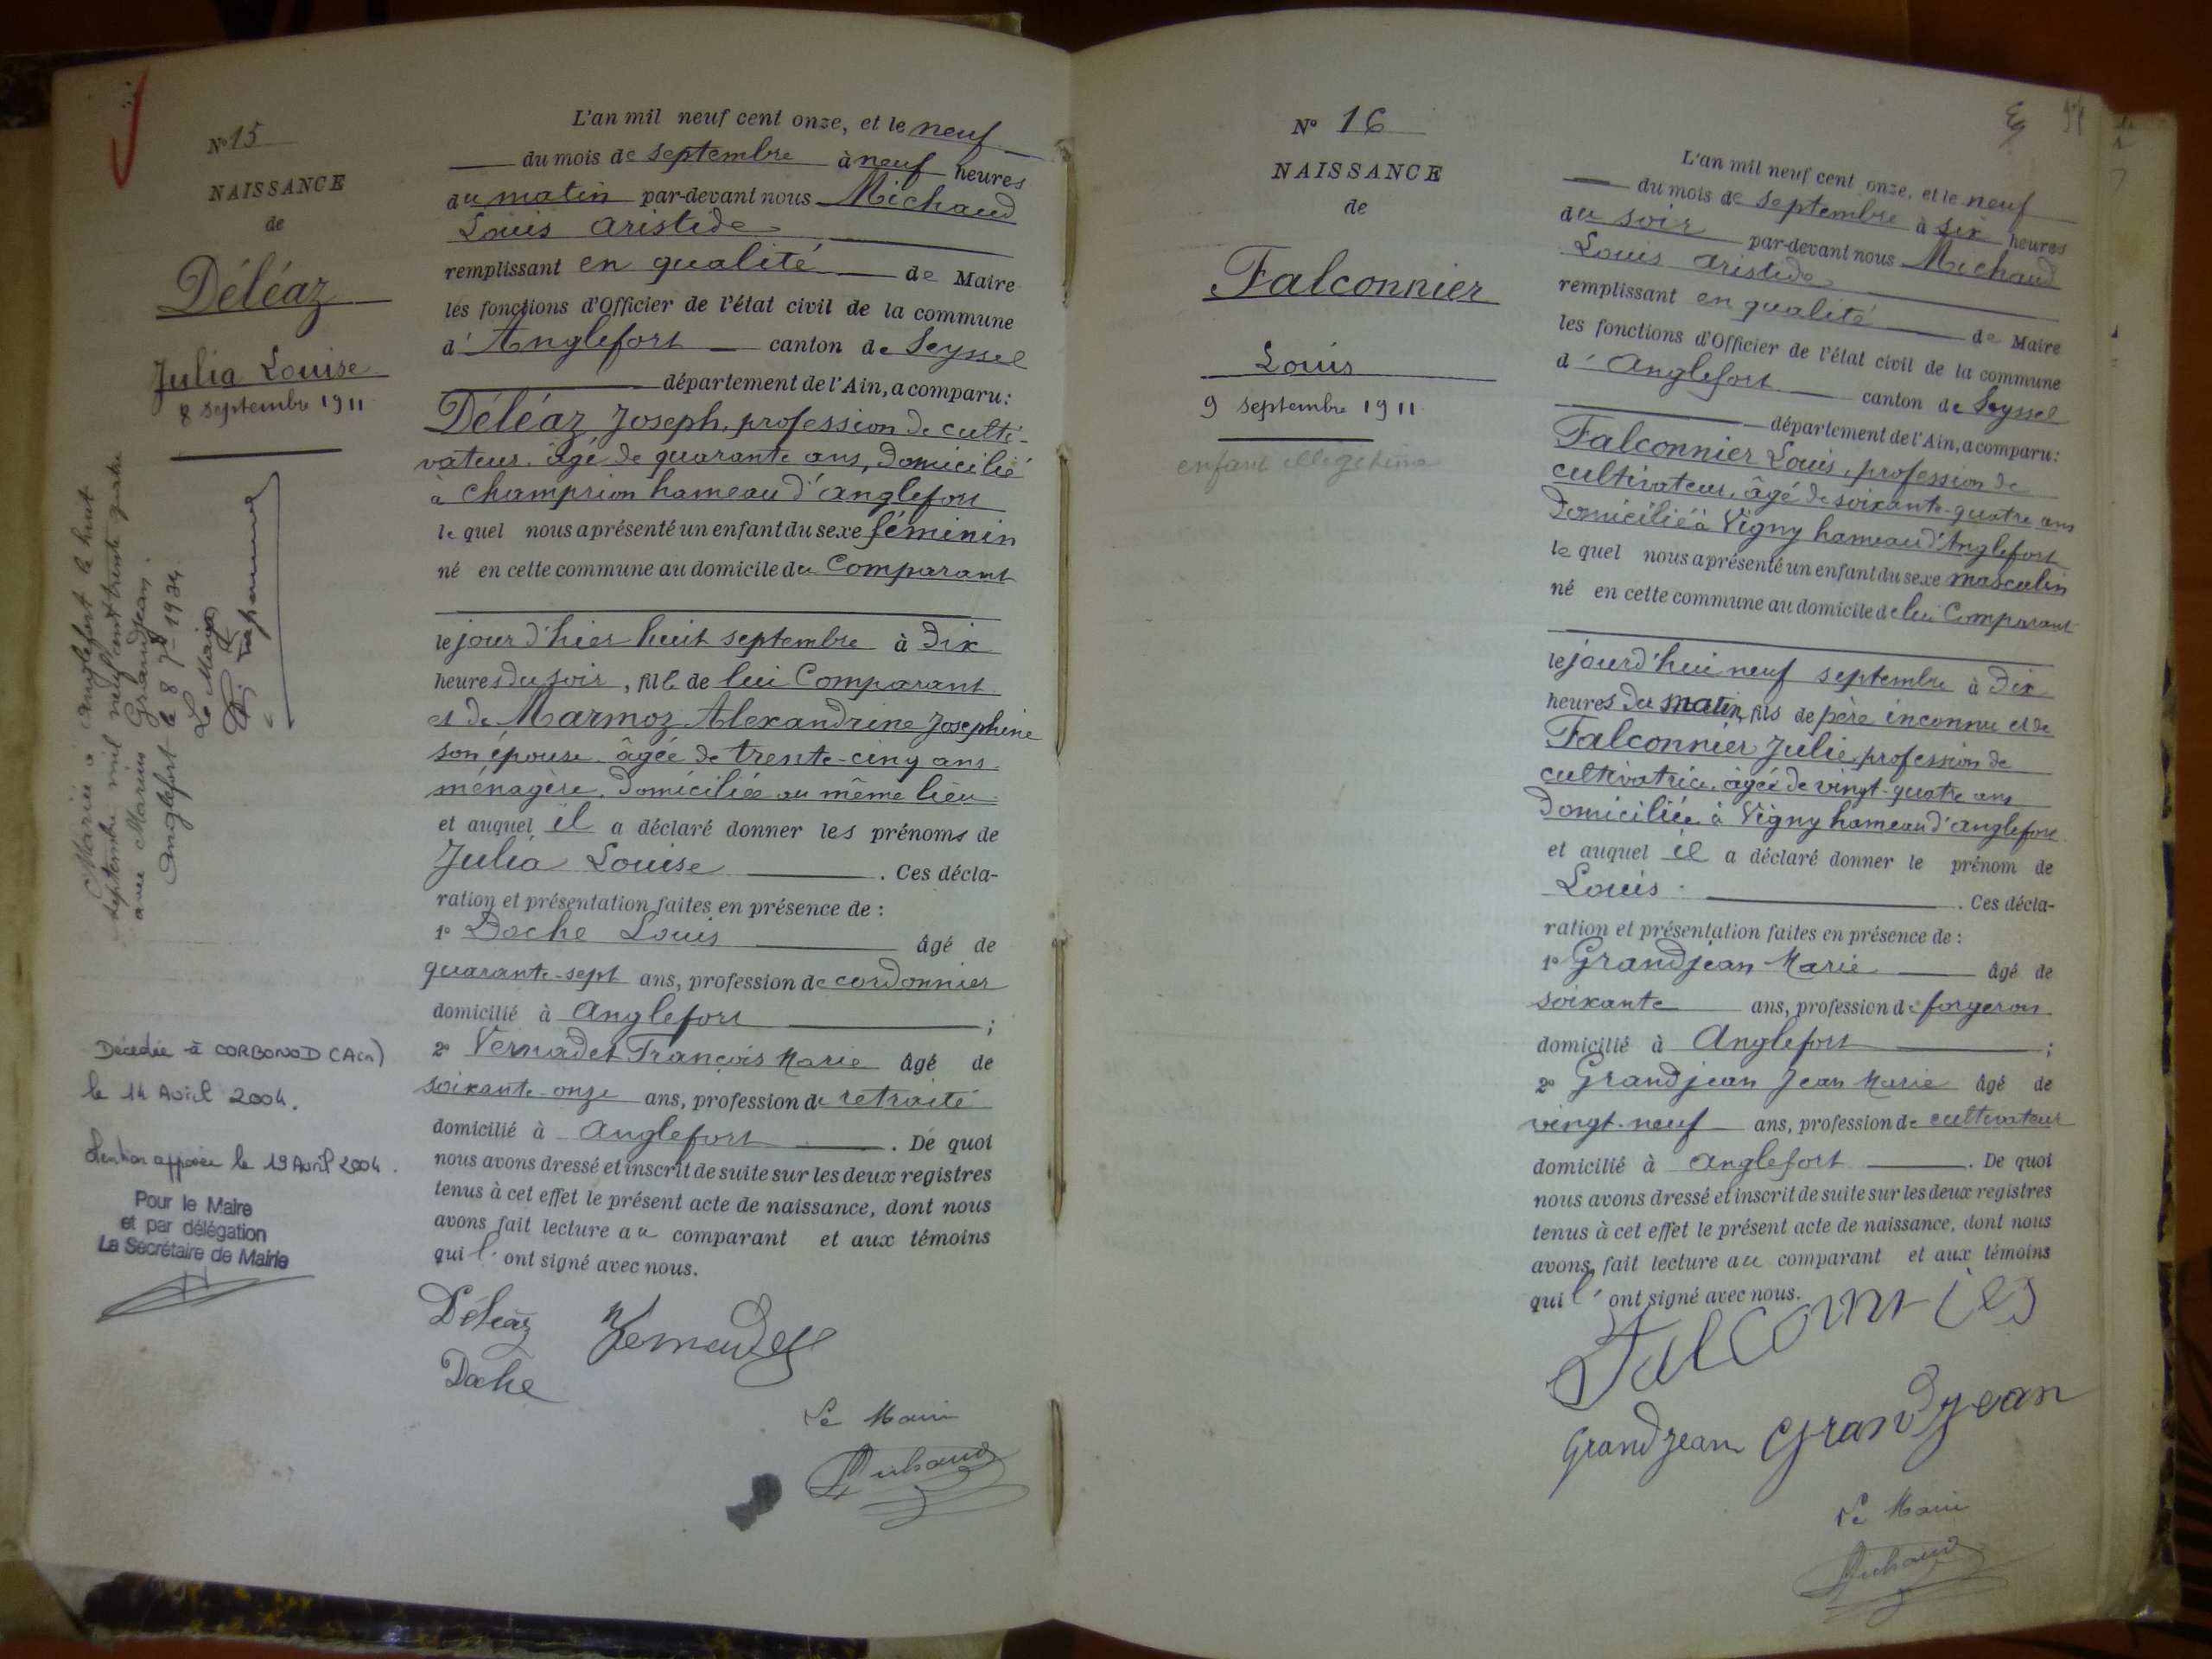 N° 15
NAISSANCE
de
Déléaz
Julia Louise
8 septembre 1911
Mariée à Anglefort le huit
septembre mil neuf cent trente quatre
avec Marius Grandjean.
Anglefort le 8 7bre 1934.
Le Maire
Décédée à CORBONOD (Ain)
le 14 Avril 2004.
Mention apposée le 19 Avril 2004.
Pour le Maire
et par délégation
La Secrétaire de Mairie
L'an mil neuf cent onze, et le neuf
du mois de septembre à neuf heures
du matin par-devant nous Michaud
Louis Aristide
remplissant en qualité de Maire
les fonctions d'Officier de l'état civil de la commune
d'Anglefort canton de Seyssel
département de l'Ain, a comparu:
Déléaz Joseph, profession de culti-
vateur, âgé de quarante ans, domicilié
à Champrion hameau d'anglefort
le quel nous a présenté un enfant du sexe féminin
né en cette commune au domicile du Comparant
le jour d'hier huit septembre à dix
heures du soir, fille de lui Comparant
et de Marmoz Alexandrine Josephine
son épouse âgée de trente-cinq ans
ménagère, domiciliée au même lieu
et auquel il a déclaré donner les prénoms de
Julia Louise . Ces décla-
ration et présentation faites en présence de :
1° Doche Louis âgé de
quarante-sept ans, profession de cordonnier
domicilié à Anglefort ;
2° Vernadet François Marie âgé de
soixante-onze ans, profession de retraité
domicilié à Anglefort . De quoi
nous avons dressé et inscrit de suite sur les deux registres
tenus à cet effet le présent acte de naissance, dont nous
avons fait lecture au comparant et aux témoins
qui l'ont signé avec nous.
Déléaz Vernadet
Doche
Le Maire
Michaud
N° 16
NAISSANCE
de
Falconnier
Louis
9 septembre 1911
enfant illegitime
L'an mil neuf cent onze, et le neuf
du mois de septembre à six heures
du soir par-devant nous Michaud
Louis Aristide
remplissant en qualité de Maire
les fonctions d'Officier de l'état civil de la commune
d'Anglefort canton de Seyssel
département de l'Ain, a comparu:
Falconnier Louis, profession de
cultivateur, âgé de soixante-quatre ans
domicilié à Vigny hameau d'Anglefort
le quel nous a présenté un enfant du sexe masculin
né en cette commune au domicile de lui Comparant
le jourd'hui neuf septembre à dix
heures du matin, fils de père inconnu et de
Falconnier Julie, profession de
cultivatrice, âgée de vingt-quatre ans
domiciliée à Vigny hameau d'anglefort
et auquel il a déclaré donner le prénom de
Louis . Ces décla-
ration et présentation faites en présence de :
1° Grandjean Marie âgé de
soixante ans, profession de forgeron
domicilié à Anglefort ;
2° Grandjean Jean Marie âgé de
vingt-neuf ans, profession de cultivateur
domicilié à Anglefort . De quoi
nous avons dressé et inscrit de suite sur les deux registres
tenus à cet effet le présent acte de naissance, dont nous
avons fait lecture au comparant et aux témoins
qui l'ont signé avec nous.
Falconnier
Grandjean Grandjean
Le Maire
Michaud